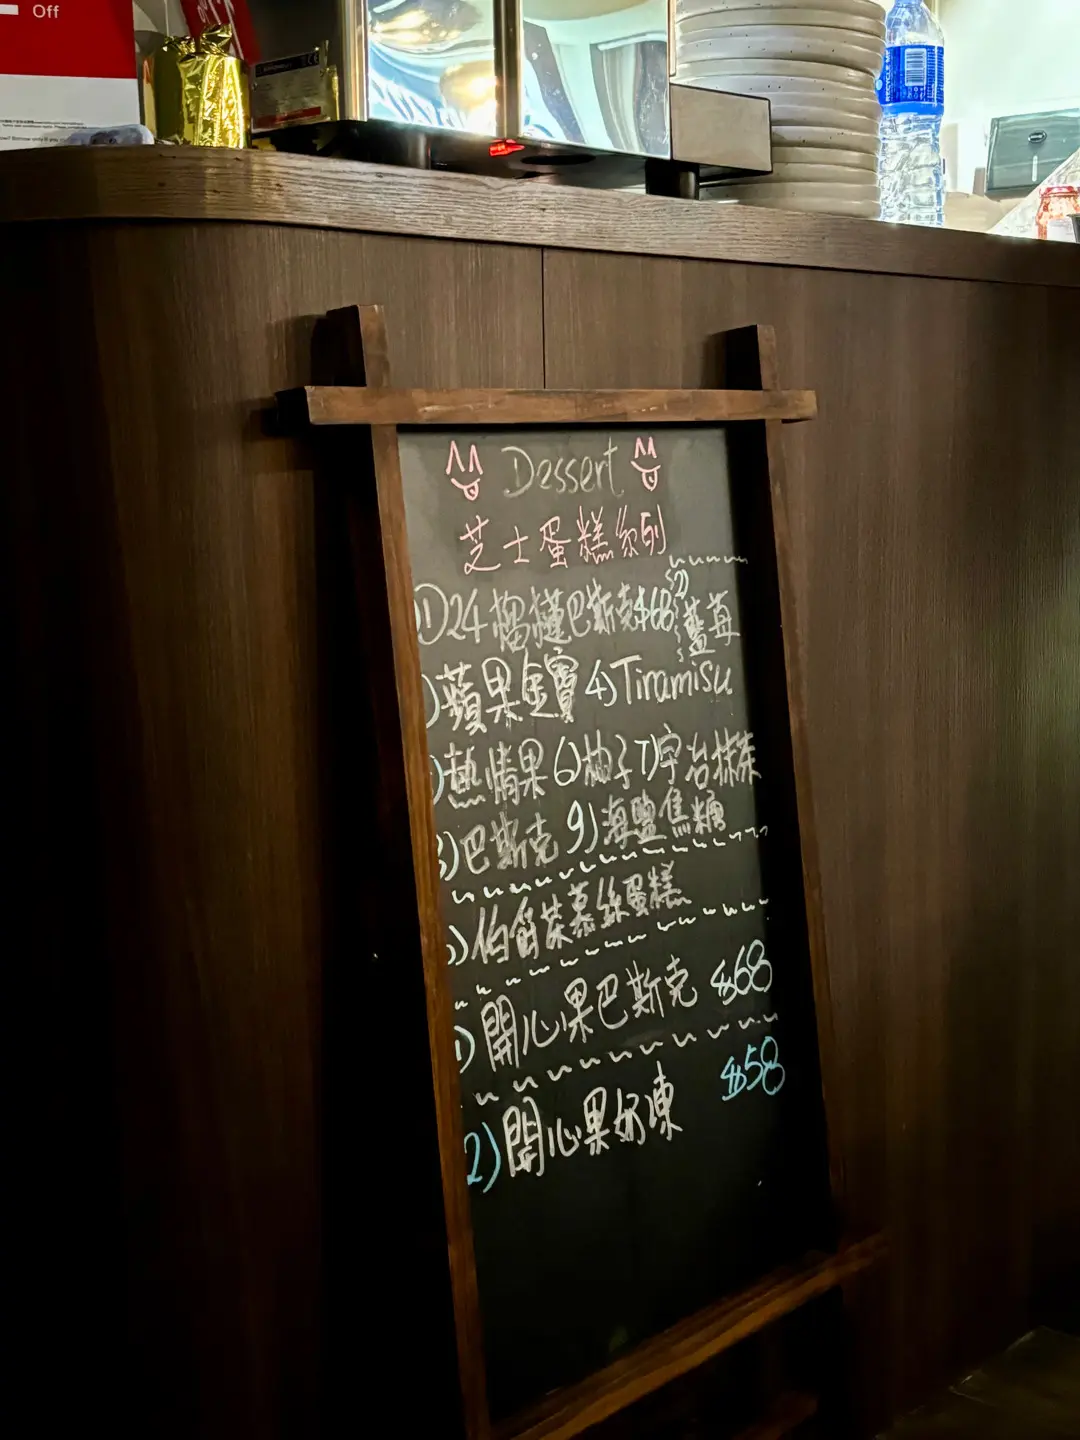 Off
Dessert
芝士蛋糕系列
①D24榴槤巴斯克$68 2)藍莓
)蘋果金寶 4)Tiramisu
)熱情果 6)柚子 7)宇治抹茶
8)巴斯克 9)海鹽焦糖
)伯爵茶慕絲蛋糕
1)開心果巴斯克 $68
2)開心果奶凍 $58